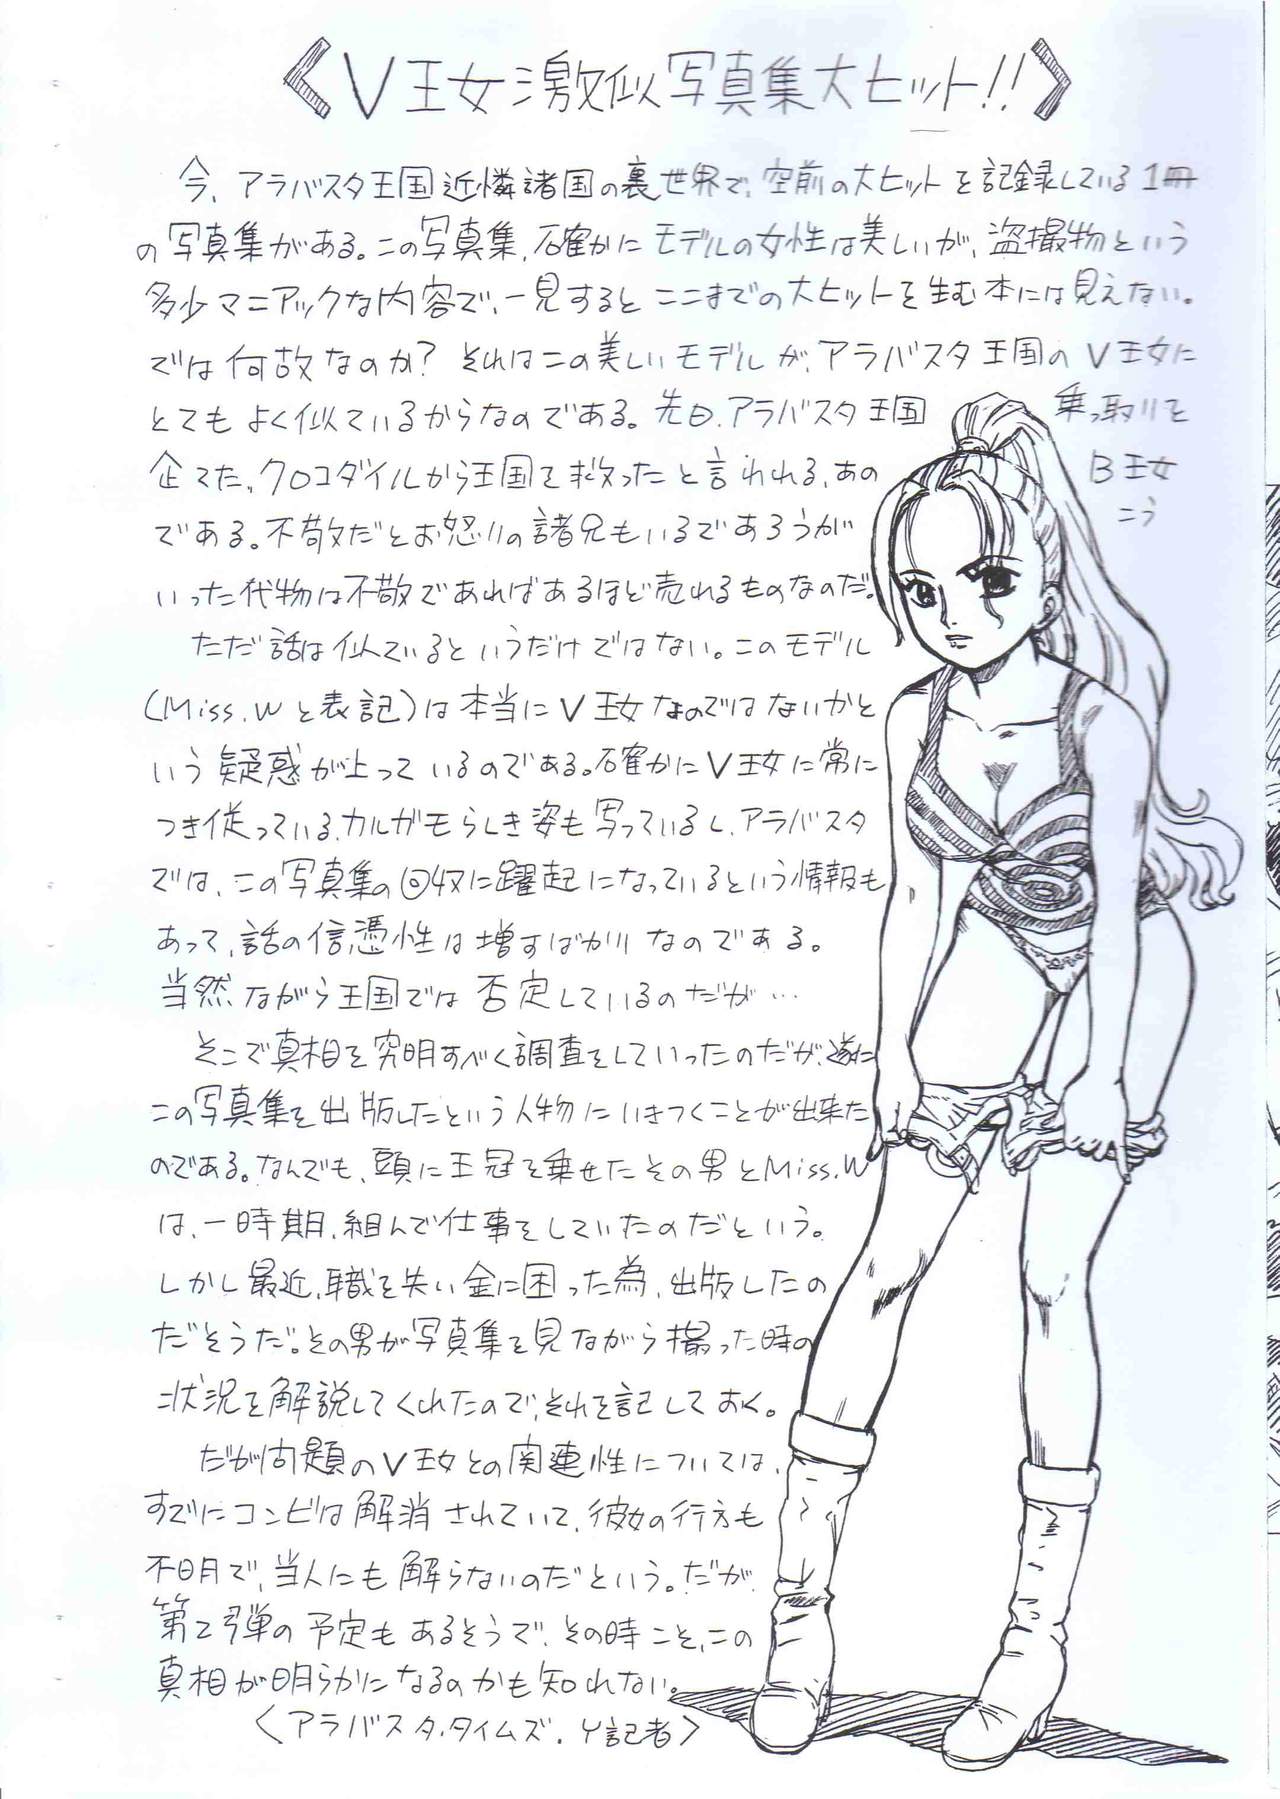 《V王女激似写真集大ヒット!!》
今、アラバスタ王国近憐諸国の裏世界で、空前の大ヒットを記録している1冊
の写真集がある。この写真集、確かにモデルの女性は美しいが、盗撮物という
多少マニアックな内容で、一見するとここまでの大ヒットを生む本には見えない。
では何故なのか？それはこの美しいモデルが、アラバスタ王国のV王女に
とてもよく似ているからなのである。先日、アラバスタ王国 乗っ取りを
企てた、クロコダイルから王国を救ったと言われる、あの B王女
である。不敬だとお怒りの諸兄もいるであろうが こう
いった代物は不敬であればあるほど売れるものなのだ。
ただ話は似ているというだけではない。このモデル
(Miss.Wと表記)は本当にV王女なのではないかと
いう疑惑が上っているのである。確かにV王女に常に
つき従っている、カルガモらしき姿も写っているし、アラバスタ
では、この写真集の回収に躍起になっているという情報も
あって、話の信憑性は増すばかりなのである。
当然ながら王国では否定しているのだが…
そこで真相を究明すべく調査をしていったのだが、遂に
この写真集を出版したという人物にいきつくことが出来た
のである。なんでも、頭に王冠を乗せたその男とMiss.W
は、一時期、組んで仕事をしていたのだという。
しかし最近、職を失い金に困った為、出版したの
だそうだ。その男が写真集を見ながら撮った時の
状況を解説してくれたので、それを記しておく。
だが問題のV王女との関連性については、
すでにコンビは解消されていて、彼女の行方も
不明で、当人にも解らないのだという。だが
第2弾の予定もあるそうで、その時こそ、この
真相が明らかになるのかも知れない。
〈アラバスタ・タイムズ．Y記者〉